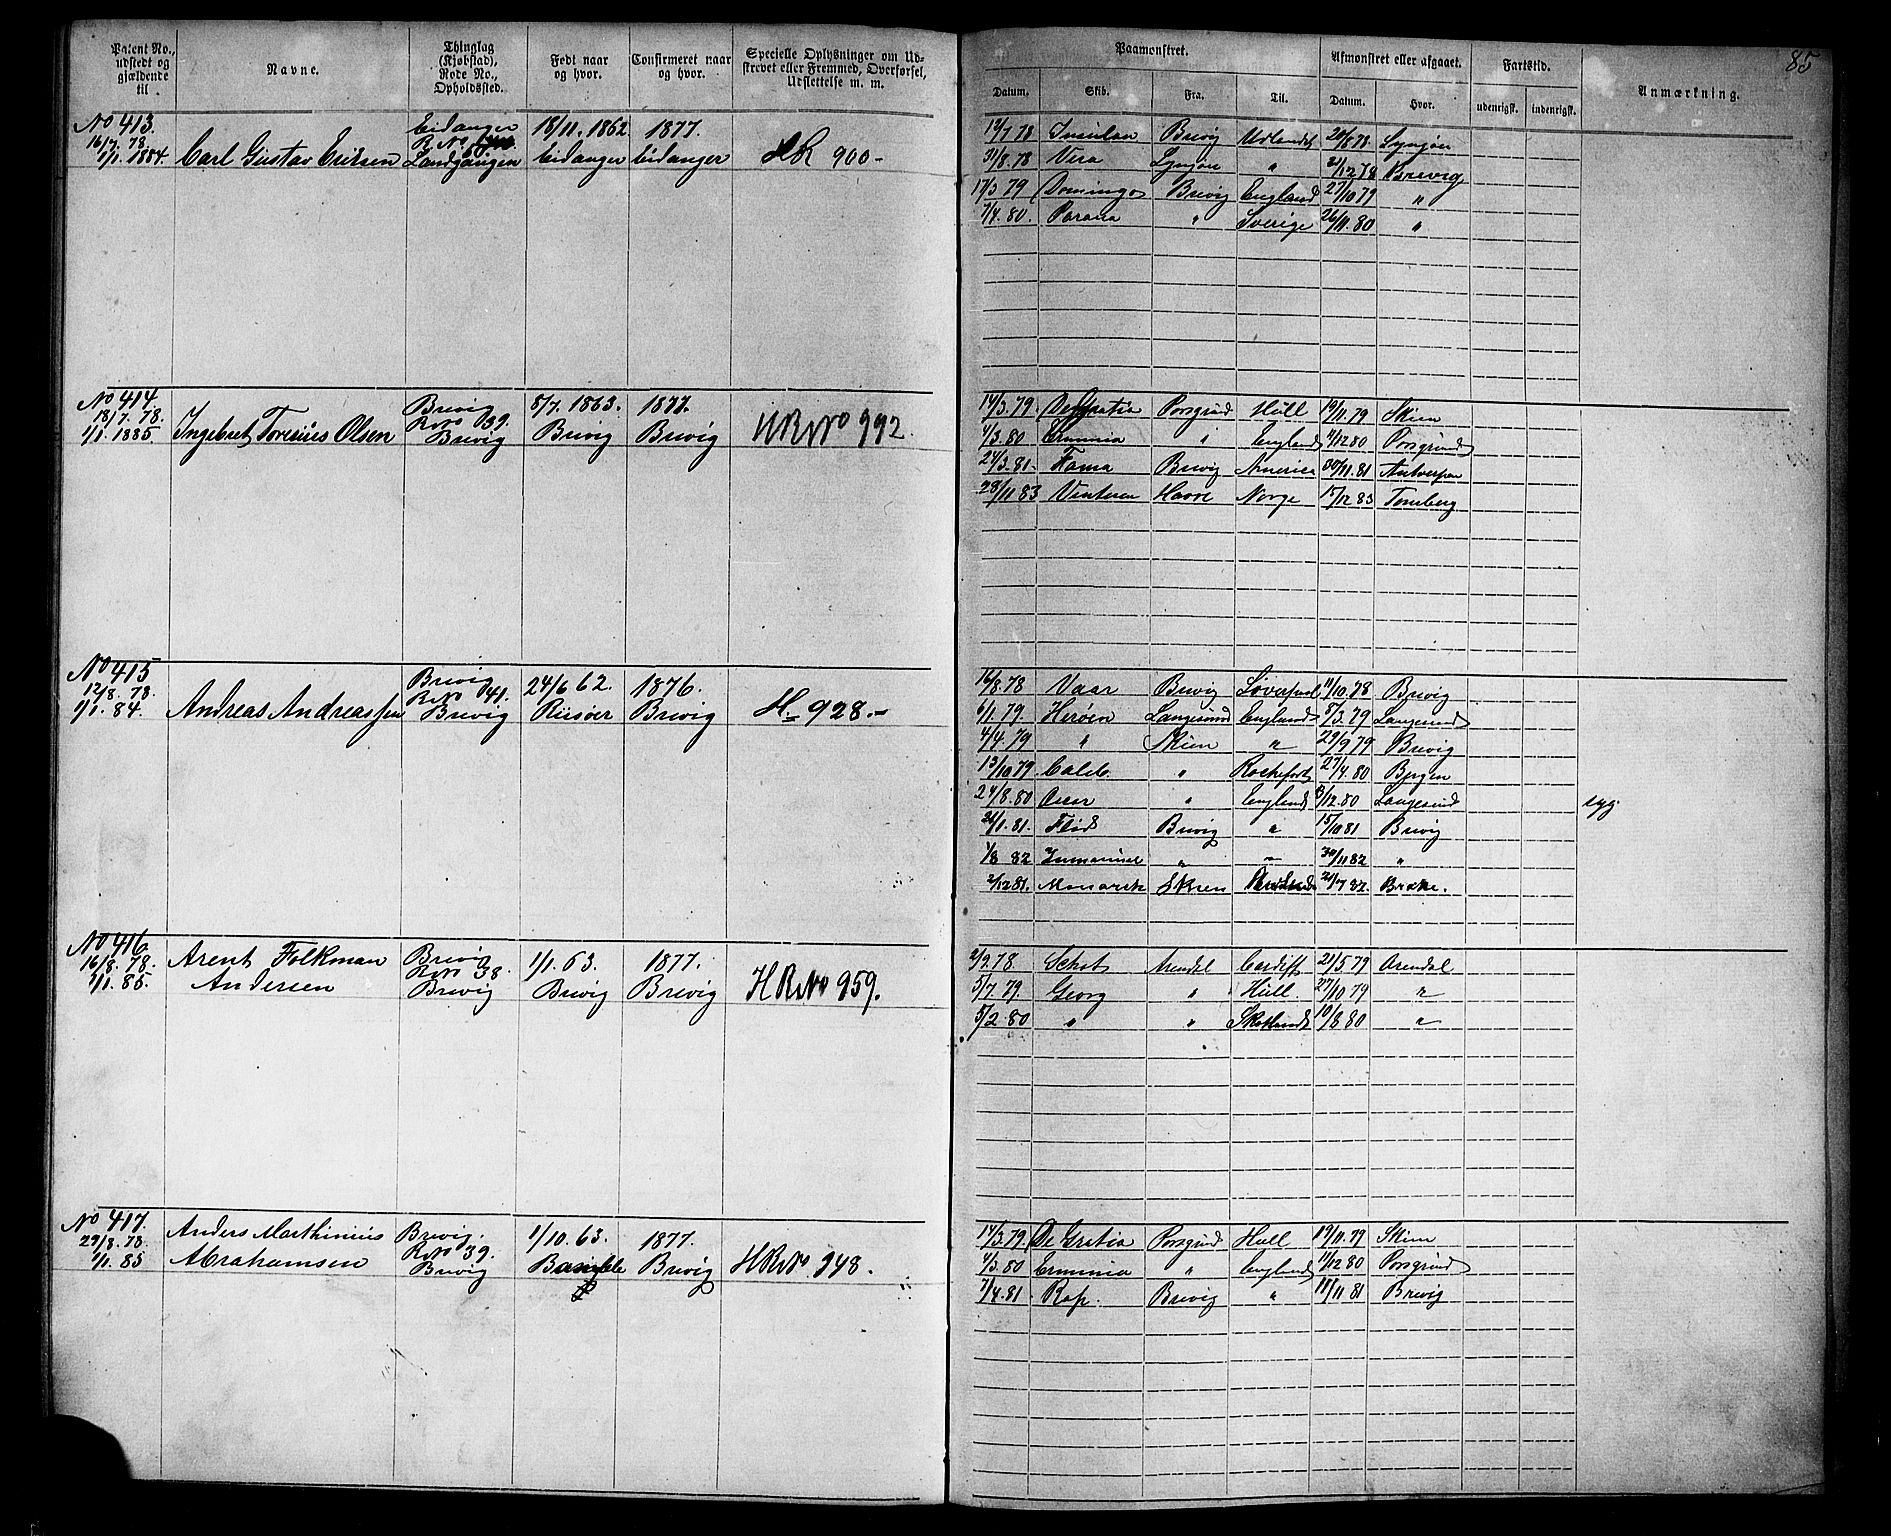 85
Patent No., udstedt og gjældende til
Navne.
Thinglag (Kjøbstad), Rode No., Opholdssted.
Født naar og hvor.
Confirmeret naar og hvor.
Specielle Oplysninger om Udskrevet eller Fremmed, Overførsel, Udslettelse m. m.
Paamønstret.
Afmønstret eller afgaaet.
Fartstid.
Anmærkning.
Datum. Skib. Fra. Til. Datum. Hvor. udenrigsk. indenrigsk.
No 413. Eidanger 18/11. 1862 1877.
16/7. 78. R No
1/1. 1884. Carl Gustav Eriksen Landgangen Eidanger Eidanger HR 900-
12/7 78 Insulan Brevig Udlandet 20/8 78 Lyngør
31/8. 78 Vera Lyngør " 21/12 78 Brevig
17/3 79 Domingo Brevig England 27/10 79 "
7/4. 80. Parana " Sverige 26/11. 80 "
No 414. Brevig 8/7. 1863. 1877.
18/7. 78. RNo 39.
1/1. 1885 Ingebret Toresius Olsen Brevig Brevig Brevig HRNo 992.
14/3. 79. De Gratia Porsgrund Hull 19/11. 79 Skien
4/3. 80 Erminia " England 11/12 80 Porsgrund
24/3. 81. Fama Brevig America 30/11. 81 Antverpen
28/11 83 Venteren Havre Norge 15/12 83 Tønsberg
No 415 Brevig 24/6 62. 1876.
12/8. 78. RNo 41.
1/1. 84. Andreas Andreassen Brevig Risøer Brevig H. 928.-
16/8. 78 Vaar Brevig Liverpool 11/10. 78 Brevig
6/1. 79. Herøen Langesund England 8/3. 79 Langesund
4/4. 79 " Skien " 29/9 79 Brevig
13/10 79 Caleb. " Rochefort 27/4. 80 Bergen
24/8. 80 Oscar " England /12. 80 Langesund syg.
21/1. 81. Flid Brevig " 15/10 81 Brevig
1/8 82 Immanuel " " 30/11 82 "
2/12 81. Monarch Skien 21/7 82. Brake.
No 416. Arent Folkman Brevig 1/1. 63. 1877.
16/8. 78. RNo 38.
1/1. 85. Andersen Brevig Brevig Brevig HRNo 959.
2/9. 78. Schot Arendal Cardiff 21/5. 79 Arendal
3/7. 79. Georg " Hull. 27/10 79 "
5/2. 80 " " Skotland 10/8 80 "
No 417. Anders Marthinius Brevig. 1/10. 63. 1877.
29/8. 78. RNo 39.
1/1. 85 Abrahamsen Brevig Bamble Brevig HRNo 948.
14/3. 79. De Gratia Porsgrund Hull 19/11. 79 Skien
4/3. 80 Erminia " England 11/12 80 Porsgrund
7/4. 81. Rap. Brevig " 18/11 81 Brevig